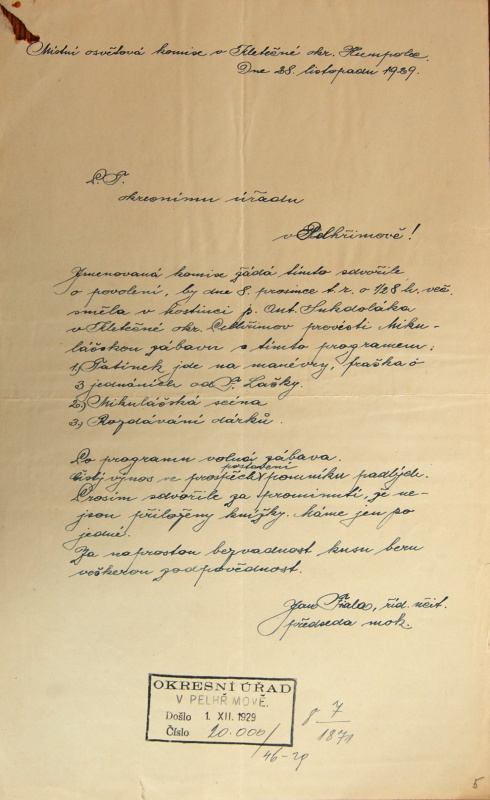 Místní osvětová komise v Kletečné okr. Humpolec.
Dne 28. listopadu 1929.
P. T.
okresnímu úřadu
v Pelhřimově!
Jmenovaná komise žádá tímto zdvořile
o povolení, by dne 8. prosince t. r. o 1/28 h. več.
směla v hostinci p. Ant. Sukdoláka
v Kletečné okr. Pelhřimov provésti Miku-
lášskou zábavu s tímto programem:
1.) Tatínek jde na manévry, fraška o
3 jednáních od F. Lašky.
2.) Mikulášská scéna
3.) Rozdávání dárků.
Po programu volná zábava.
Čistý výnos ve prospěch postavení pomníku padlých.
Prosím zdvořile za prominutí, že ne-
jsou přiloženy knížky. Máme jen po
jedné.
Za naprostou bezvadnost kusu beru
veškerou zodpovědnost.
Jan Fiala, říd. učit.
předseda mok.
OKRESNÍ ÚŘAD
V PELHŘIMOVĚ.
Došlo 1. XII. 1929
Číslo 20.000/
46-29
8 7/1871
5